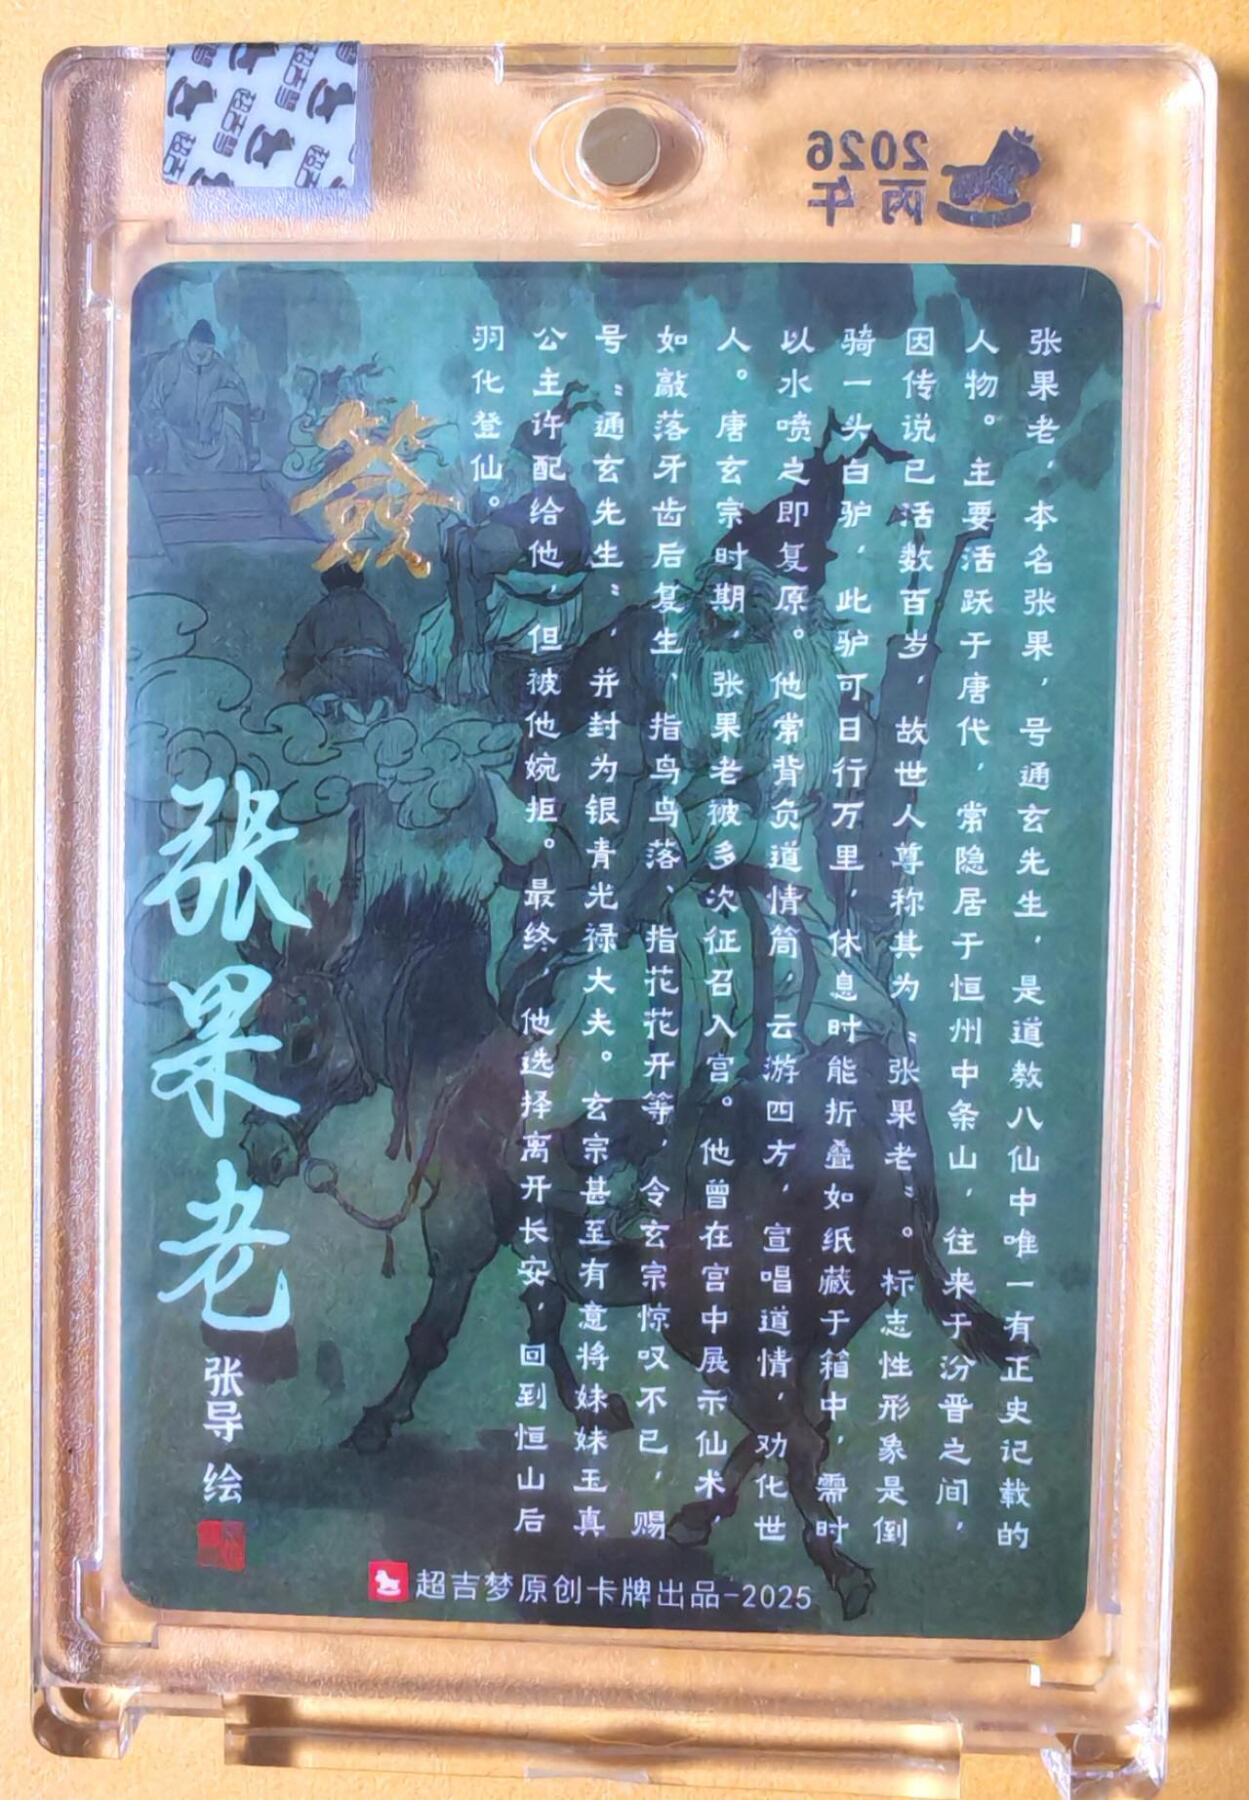 2026
丙午
张果老，本名张果，号通玄先生，是道教八仙中唯一有正史记载的
人物。主要活跃于唐代，常隐居于恒州中条山，往来于汾晋之间，
因传说已活数百岁，故世人尊称其为“张果老”。标志性形象是倒
骑一头白驴，此驴可日行万里，休息时能折叠如纸藏于箱中，需时
以水喷之即复原。他常背负道情筒，云游四方，宣唱道情，劝化世
人。唐玄宗时期，张果老被多次征召入宫。他曾在宫中展示仙术，
如敲落牙齿后复生、指鸟鸟落、指花花开等，令玄宗惊叹不已，赐
号“通玄先生”，并封为银青光禄大夫。玄宗甚至有意将妹妹玉真
公主许配给他，但被他婉拒。最终，他选择离开长安，回到恒山后
羽化登仙。
发
张果老
张导 绘
超吉梦原创卡牌出品-2025